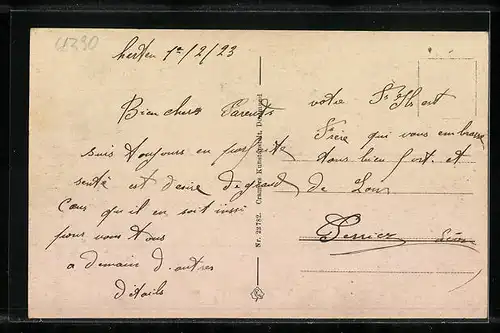 4290
Herten 1er/2/23
Bien chers Parents
suis toujours en parfaite
santé et désire de grand
Cœur qu'il en soit ainsi
pour vous tous
a demain d. autres
détails
Nr. 22782. Cramers Kunstanstalt, Dortmund
votre
Frère qui vous embrasse
tous bien fort. et
de Cœur
Perrier